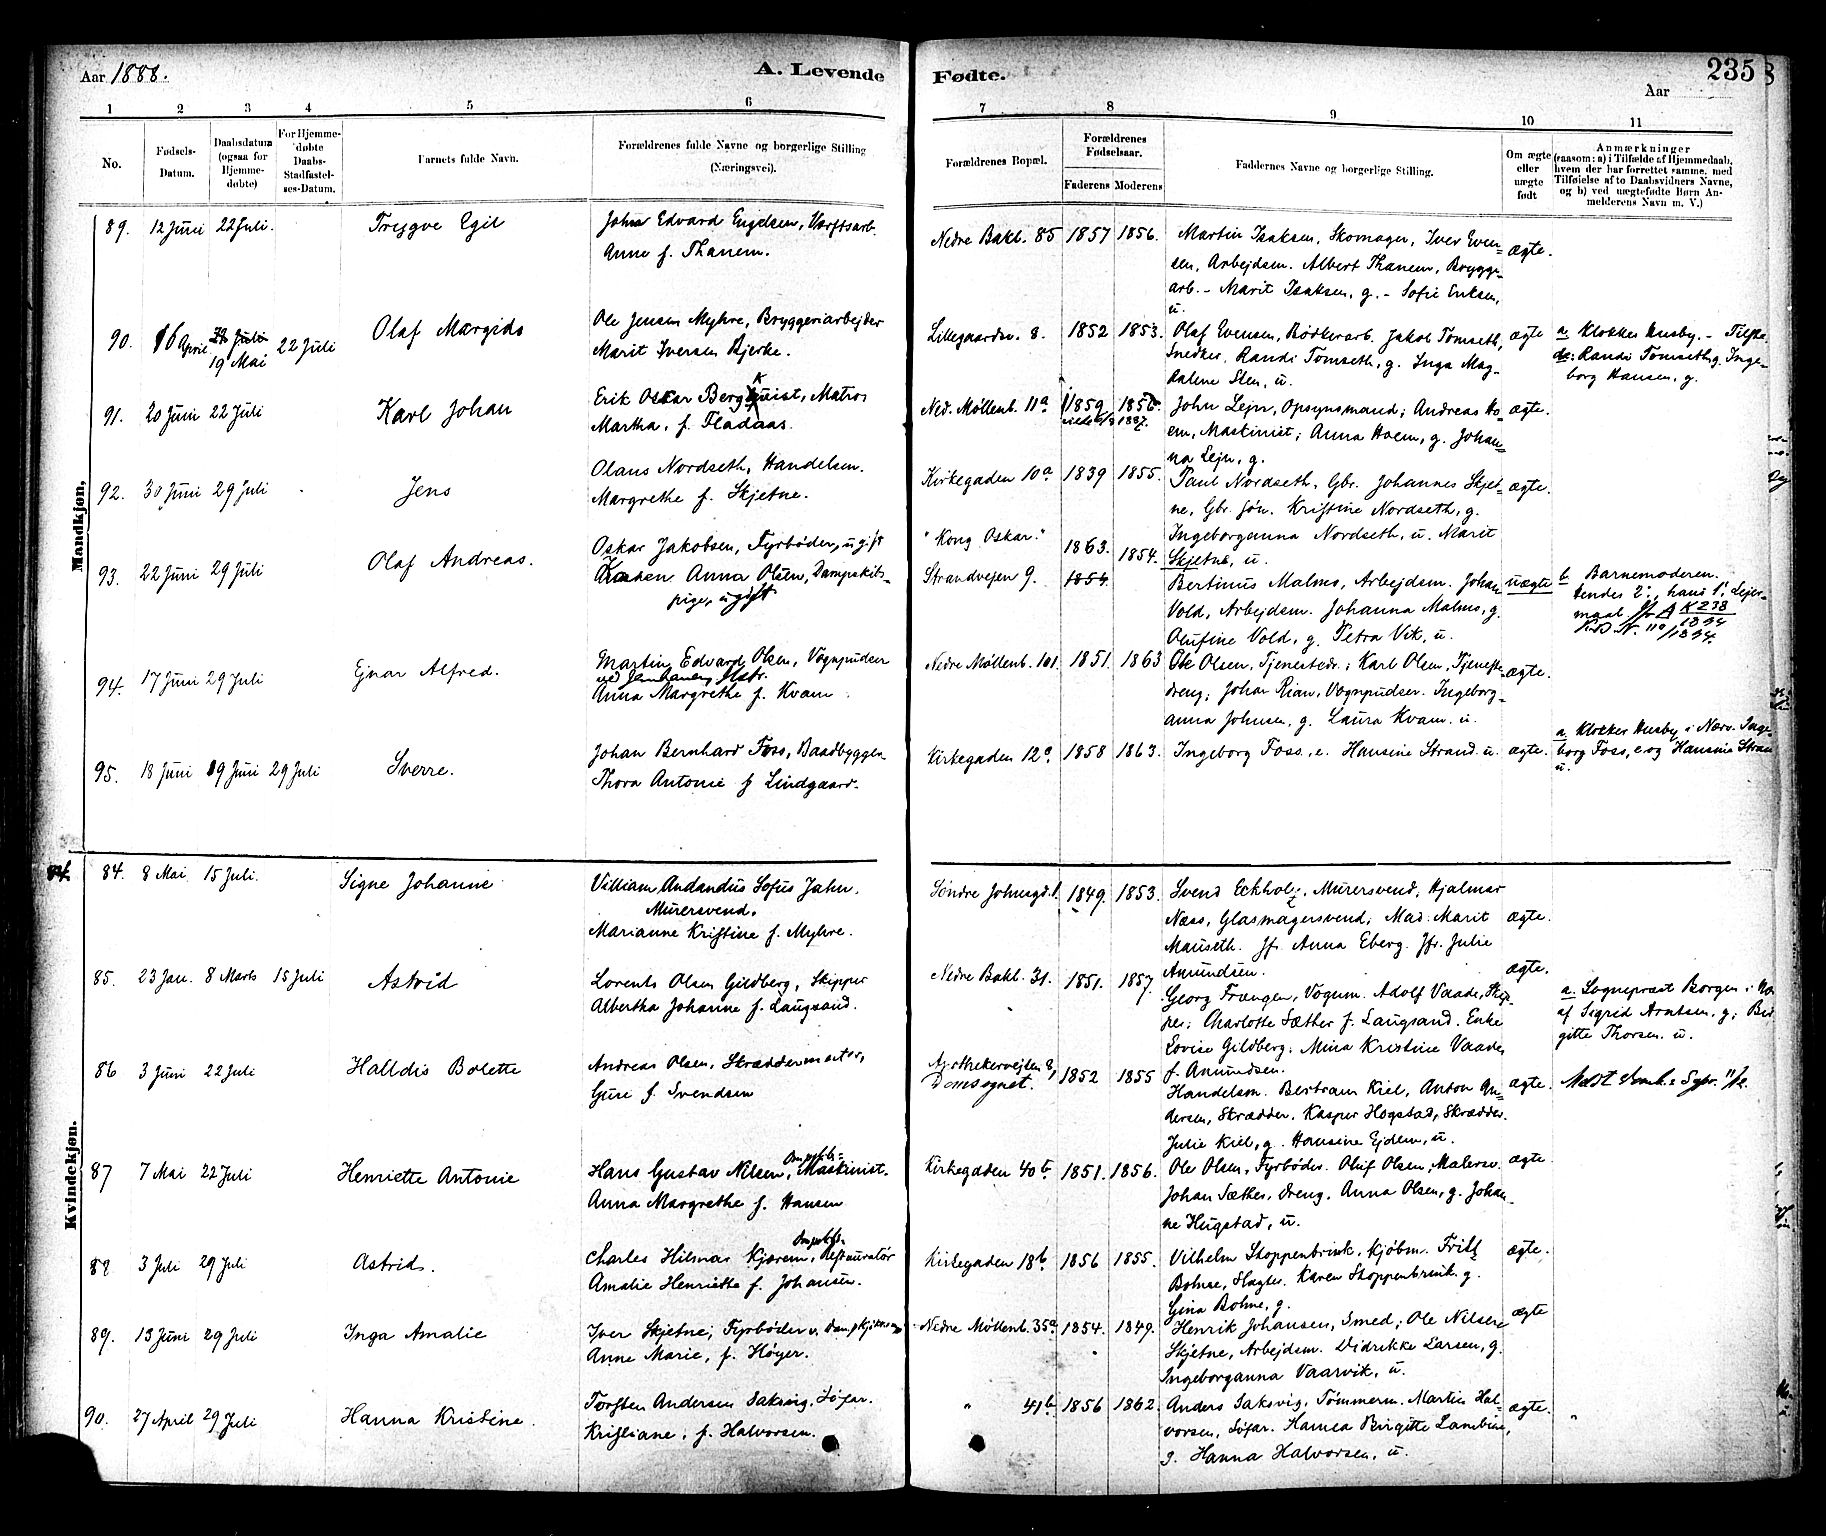 Aar 1888.
A. Levende
Fødte.
235
Aar
1 2 3 4 5 6 7 8 9 10 11
No.
Fødsels-
Datum.
Daabsdatum
(ogsaa for
Hjemme-
døbte)
For Hjemme-
døbte
Daabs-
Stadfæstel-
ses-Datum.
Barnets fulde Navn.
Forældrenes fulde Navne og borgerlige Stilling
(Næringsvei).
Forældrenes Bopæl.
Forældrenes
Fødselsaar.
Faderens Moderens
Faddernes Navne og borgerlige Stilling.
Om ægte
eller
uægte
født
Anmærkninger
(saasom: a) i Tilfælde af Hjemmedaab,
hvem der har forrettet samme, med
Tilføielse af to Daabsvidners Navne,
og b) ved uægtefødte Børn An-
melderens Navn m. V.)
Mandkjøn.
89. 12 Juni 22 Juli. Trygve Egil
John Edvard Engelsen, Værftsarb.
Anne f. Thanem.
Nedre Bakl. 85 1857 1856.
Martin Isaksen, Skomager, Iver Even-
sen, Arbejdsm. Albert Thanem, Brygge-
arb. - Marit Isaksen, g. - Sofie Eriksen,
u.
ægte.
90. 16 April 19 Mai 22 Juli Olaf Margido
Ole Jensen Myhre, Bryggeriarbejder
Marit Iversen Bjerke.
Lillegaardsv. 8. 1852 1853.
Olaf Evensen, Bødkerarb. Jakob Tømseth,
Snedker. Randi Tømseth, g. Inga Mag-
dalene Sten, u.
ægte
a Klokker Husby. - Tilste-
de: Randi Tømseth, g. Inge-
borg Hansen, g.
91. 20 Juni 22 Juli Karl Johan
Erik Oskar Bergkvist, Matros
Martha, f. Fladaas.
Ned. Møllenb. 11a 1859 1856.
1887.
John Lejn, Opsynsmand; Andreas Ho-
em, Maskinist; Anna Hoem, g. Johan-
na Lejn, g.
ægte.
92. 30 Juni 29 Juli Jens
Olaus Nordseth, Handelsm.
Margrethe f. Skjetne.
Kirkegaden 10a 1839 1855.
Paul Nordseth, Gbr. Johannes Skjet-
ne, Gbr. søn. Kristine Nordseth, g.
Ingeborganna Nordseth, u. Marit
Skjetne, u.
ægte.
93. 22 Juni 29 Juli Olaf Andreas.
Oskar Jakobsen, Fyrbøder, ugift
Karen Anna Olsen, Dampskibs-
pige, ugift
"Kong Oskar."
Strandvejen 9. 1863. 1854.
1854
Bertinus Malmo, Arbejdsm. Johan
Vold, Arbejdsm. Johanna Malmo, g.
Olufine Vold, g. Petra Vik, u.
uægte
b Barnemoderen.
hendes 2., hans 1. Lejer-
maal.
94. 17 Juni 29 Juli Ejnar Alfred.
Martin Edvard Olsen, Vognpudser
Anna Margrethe f. Kvam.
Nedre Møllenb. 101. 1851. 1863
Ole Olsen, Tjenestedr.; Karl Olsen, Tjeneste-
dreng; Johan Rian, Vognpudser. Ingeborg-
anna Johnsen, g. Laura Kvam. u.
ægte.
95. 18 Juni 19 Juni 29 Juli Sverre.
Johan Bernhard Foss, Baadbygger
Thora Antonie f Lindgaard.
Kirkegaden 12a 1858 1863.
Ingeborg Foss, e. Hansine Strand. u.
ægte.
a Klokker Husby i Nærv. Inge-
borg Foss, e. og Hansine Stran
u.
Kvindekjøn.
84. 8 Mai 15 Juli. Signe Johanne
Villiam Andandus Sofus Jahn.
Murersvend.
Marianne Kristine f. Myhre.
Søndre Johnsgd. 1. 1849. 1853.
Svend Eckholz, Murersvend, Hjalmar
Næss, Glasmagersvend; Mad. Marit
Mauseth. Jfr. Anna Eberg. Jfr. Julie
Amundsen.
ægte.
85. 23 Jan. 8 Marts 15 Juli Astrid
Lorents Olsen Gildberg, Skipper
Albertha Johanne f. Laugsand.
Nedre Bakl. 31. 1851. 1857.
Georg Frængen, Vognm. Adolf Vaade, Skip-
per; Charlotte Sæther f. Laugsand. Enke
Lovise Gildberg; Mina Kristine Vaade,
f. Amundsen.
ægte.
a. Sogneprest Borgen i
af Sigrid Arntsen, g; Bir
gitte Thorsen. u.
86 3 Juni 22 Juli Halldis Bolette
Andreas Olsen, Skræddermester,
Guri f. Svendsen
Apothekervejlen 8,
Domsognet. 1852 1855
Handelsm. Bertram Kiel, Anton An-
dersen, Skrædder. Kasper Hogstad, Skrædder.
Julie Kiel, g. Hansine Ejdem, u.
ægte.
87 7 Mai 22 Juli Henriette Antonie
Hans Gustav Nilsen, Maskinist.
Anna Margrethe f. Hansen
Kirkegaden 40b 1851. 1856.
Ole Olsen, Fyrbøder. Oluf Olsen, Malersv.
Johan Sæther, dreng. Anna Olsen, g. Johan-
ne Hugstad, u.
ægte.
88 3 Juli 29 Juli Astrid.
Charles Hilmar Kjørem, Restauratør
Amalie Henriette f. Johansen.
Kirkegaden 18b 1856 1855.
Vilhelm Skoppenbrink, Kjøbm. Fritz
Bohne, Slagter. Karen Skoppenbrink. g.
Gina Bohne, g.
ægte.
89. 13 Juni 29 Juli Inga Amalie
Iver Skjetne, Fyrbøder
Anne Marie, f. Høyer.
Nedre Møllenb. 35a 1854. 1849.
Henrik Johansen, Smed; Ole Nilsen
Skjetne, Arbejdsm. Didrikke Larsen, g.
Ingeborganna Vaarvik, u.
ægte
90. 27 April 29 Juli Hanna Kristine.
Torsten Andersen Saksvig, Søfar.
Kristiane, f. Halvorsen.
" 41b 1856 1862.
Anders Saksvig, Tømmerm. Martin Hal-
vorsen, Søfar. Hanna Birgitte Lambine,
g. Hanna Halvorsen, u.
ægte.